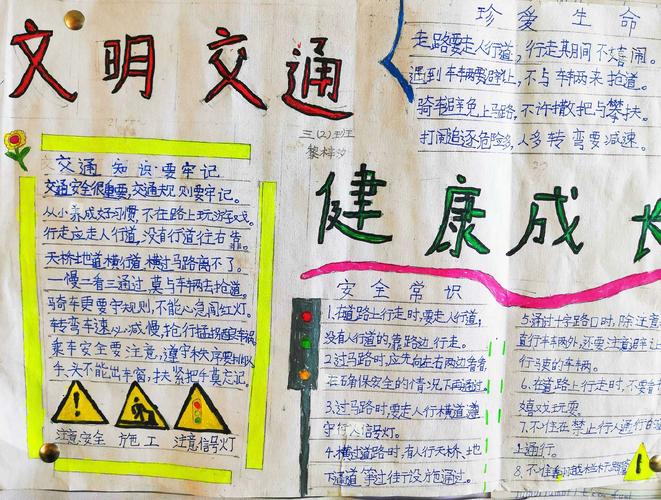 文明交通
三(2)班
珍爱生命
走路要走人行道，行走其间不嬉闹。
遇到车辆要避让，不与车辆来抢道。
骑车避免上马路，不许撒把与攀扶。
打闹追逐危险多，人多转弯要减速。
交通知识要牢记
交通安全很重要，交通规则要牢记。
从小养成好习惯，不在路上玩游戏。
行走应走人行道，没有行道往右靠。
天桥地道横行道，横过马路离不了。
一慢二看三通过，莫与车辆去抢道。
骑车更要守规则，不能心急闯红灯。
转弯车速必减慢，抢行猛拐
乘车安全要注意，遵守秩序要
手、头不能出车窗，扶紧把手莫忘记。
注意安全 施工 注意信号灯
健康成长
安全常识
1.在道路上行走时，要走人行道，
没有人行道的，靠路边行走。
2.过马路时，应先向左右两边看看，
在确保安全的情况下再通过。
3.过马路时，要走人行横道，遵
守行人信号灯。
4.横过道路时，有人行天桥、地
下通道等过街设施通过。
5.通过十字路口时，除注意
直行车辆外，还要注意避让
行驶的车辆。
6.在道路上行走时，不要
嬉戏玩耍。
7.不准在禁上行人通行的
上通行。
8.不准